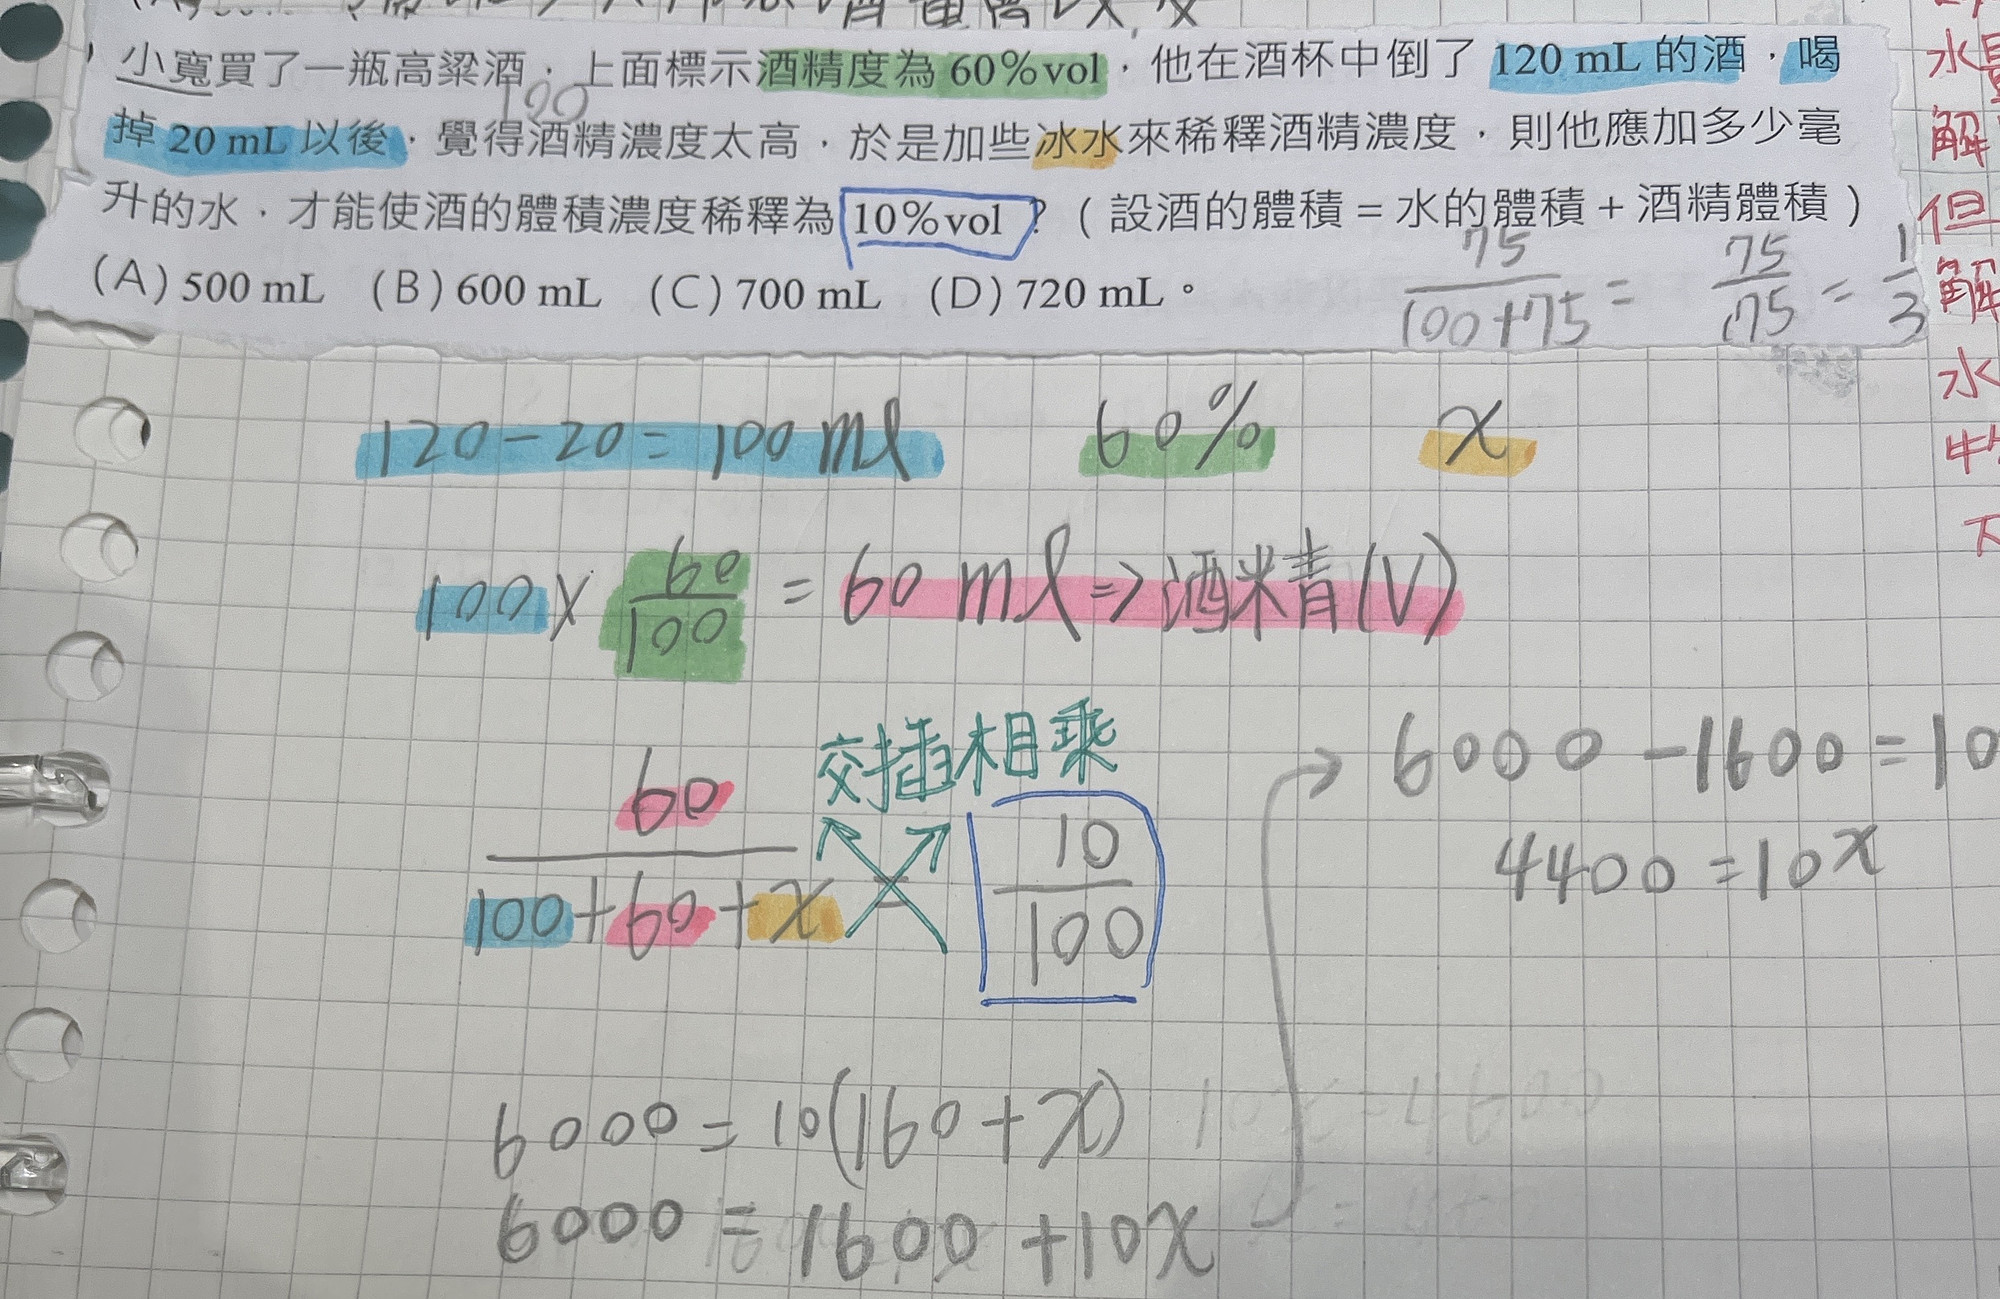 小寬買了一瓶高粱酒，上面標示酒精度為 60%vol，他在酒杯中倒了 120 mL 的酒，喝
100
掉 20 mL 以後，覺得酒精濃度太高，於是加些冰水來稀釋酒精濃度，則他應加多少毫
升的水，才能使酒的體積濃度稀釋為 10%vol？（設酒的體積＝水的體積＋酒精體積）
(A) 500 mL (B) 600 mL (C) 700 mL (D) 720 mL。
75/(100+75) = 75/175 = 1/3
水量
解
但
解
水
120-20=100ml 60% x
100× 60/100 = 60 ml => 酒精(V)
交插相乘
60/(100+60+x) = 10/100
6000 = 10(160+x)
6000 = 1600 +10x
6000 -1600 = 10
4400 = 10x
10x=4600